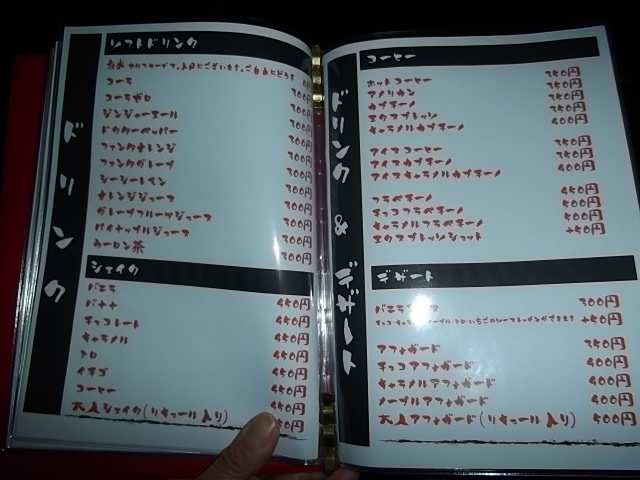 ドリンク
ソフトドリンク
お水 セルフサービスで、入口にございます。ご自由にどうぞ 0円
コーラ 300円
コーラゼロ 300円
ジンジャーエール 300円
ドクターペッパー 300円
ファンタオレンジ 300円
ファンタグレープ 300円
シーシーレモン 300円
オレンジジュース 300円
グレープフルーツジュース 300円
パイナップルジュース 300円
ウーロン茶 300円
シェイク
バニラ 450円
バナナ 450円
チョコレート 450円
キャラメル 450円
アロ 450円
イチゴ 450円
コーヒー 450円
大人シェイク(リキュール入り) 50円
ドリンク & デザート
コーヒー
ホットコーヒー 350円
アメリカン 350円
カプチーノ 350円
エスプレッソ 350円
キャラメルカプチーノ 400円
アイスコーヒー 350円
アイスカプチーノ 350円
アイスキャラメルカプチーノ 400円
フラペチーノ 450円
チョコフラペチーノ 500円
キャラメルフラペチーノ 500円
エクスプレッソショット +50円
デザート
バニラ 300円
+50円
アフォガード 350円
チョコアフォガード 400円
キャラメルアフォガード 400円
メープルアフォガード 400円
大人アフォガード(リキュール入り) 500円